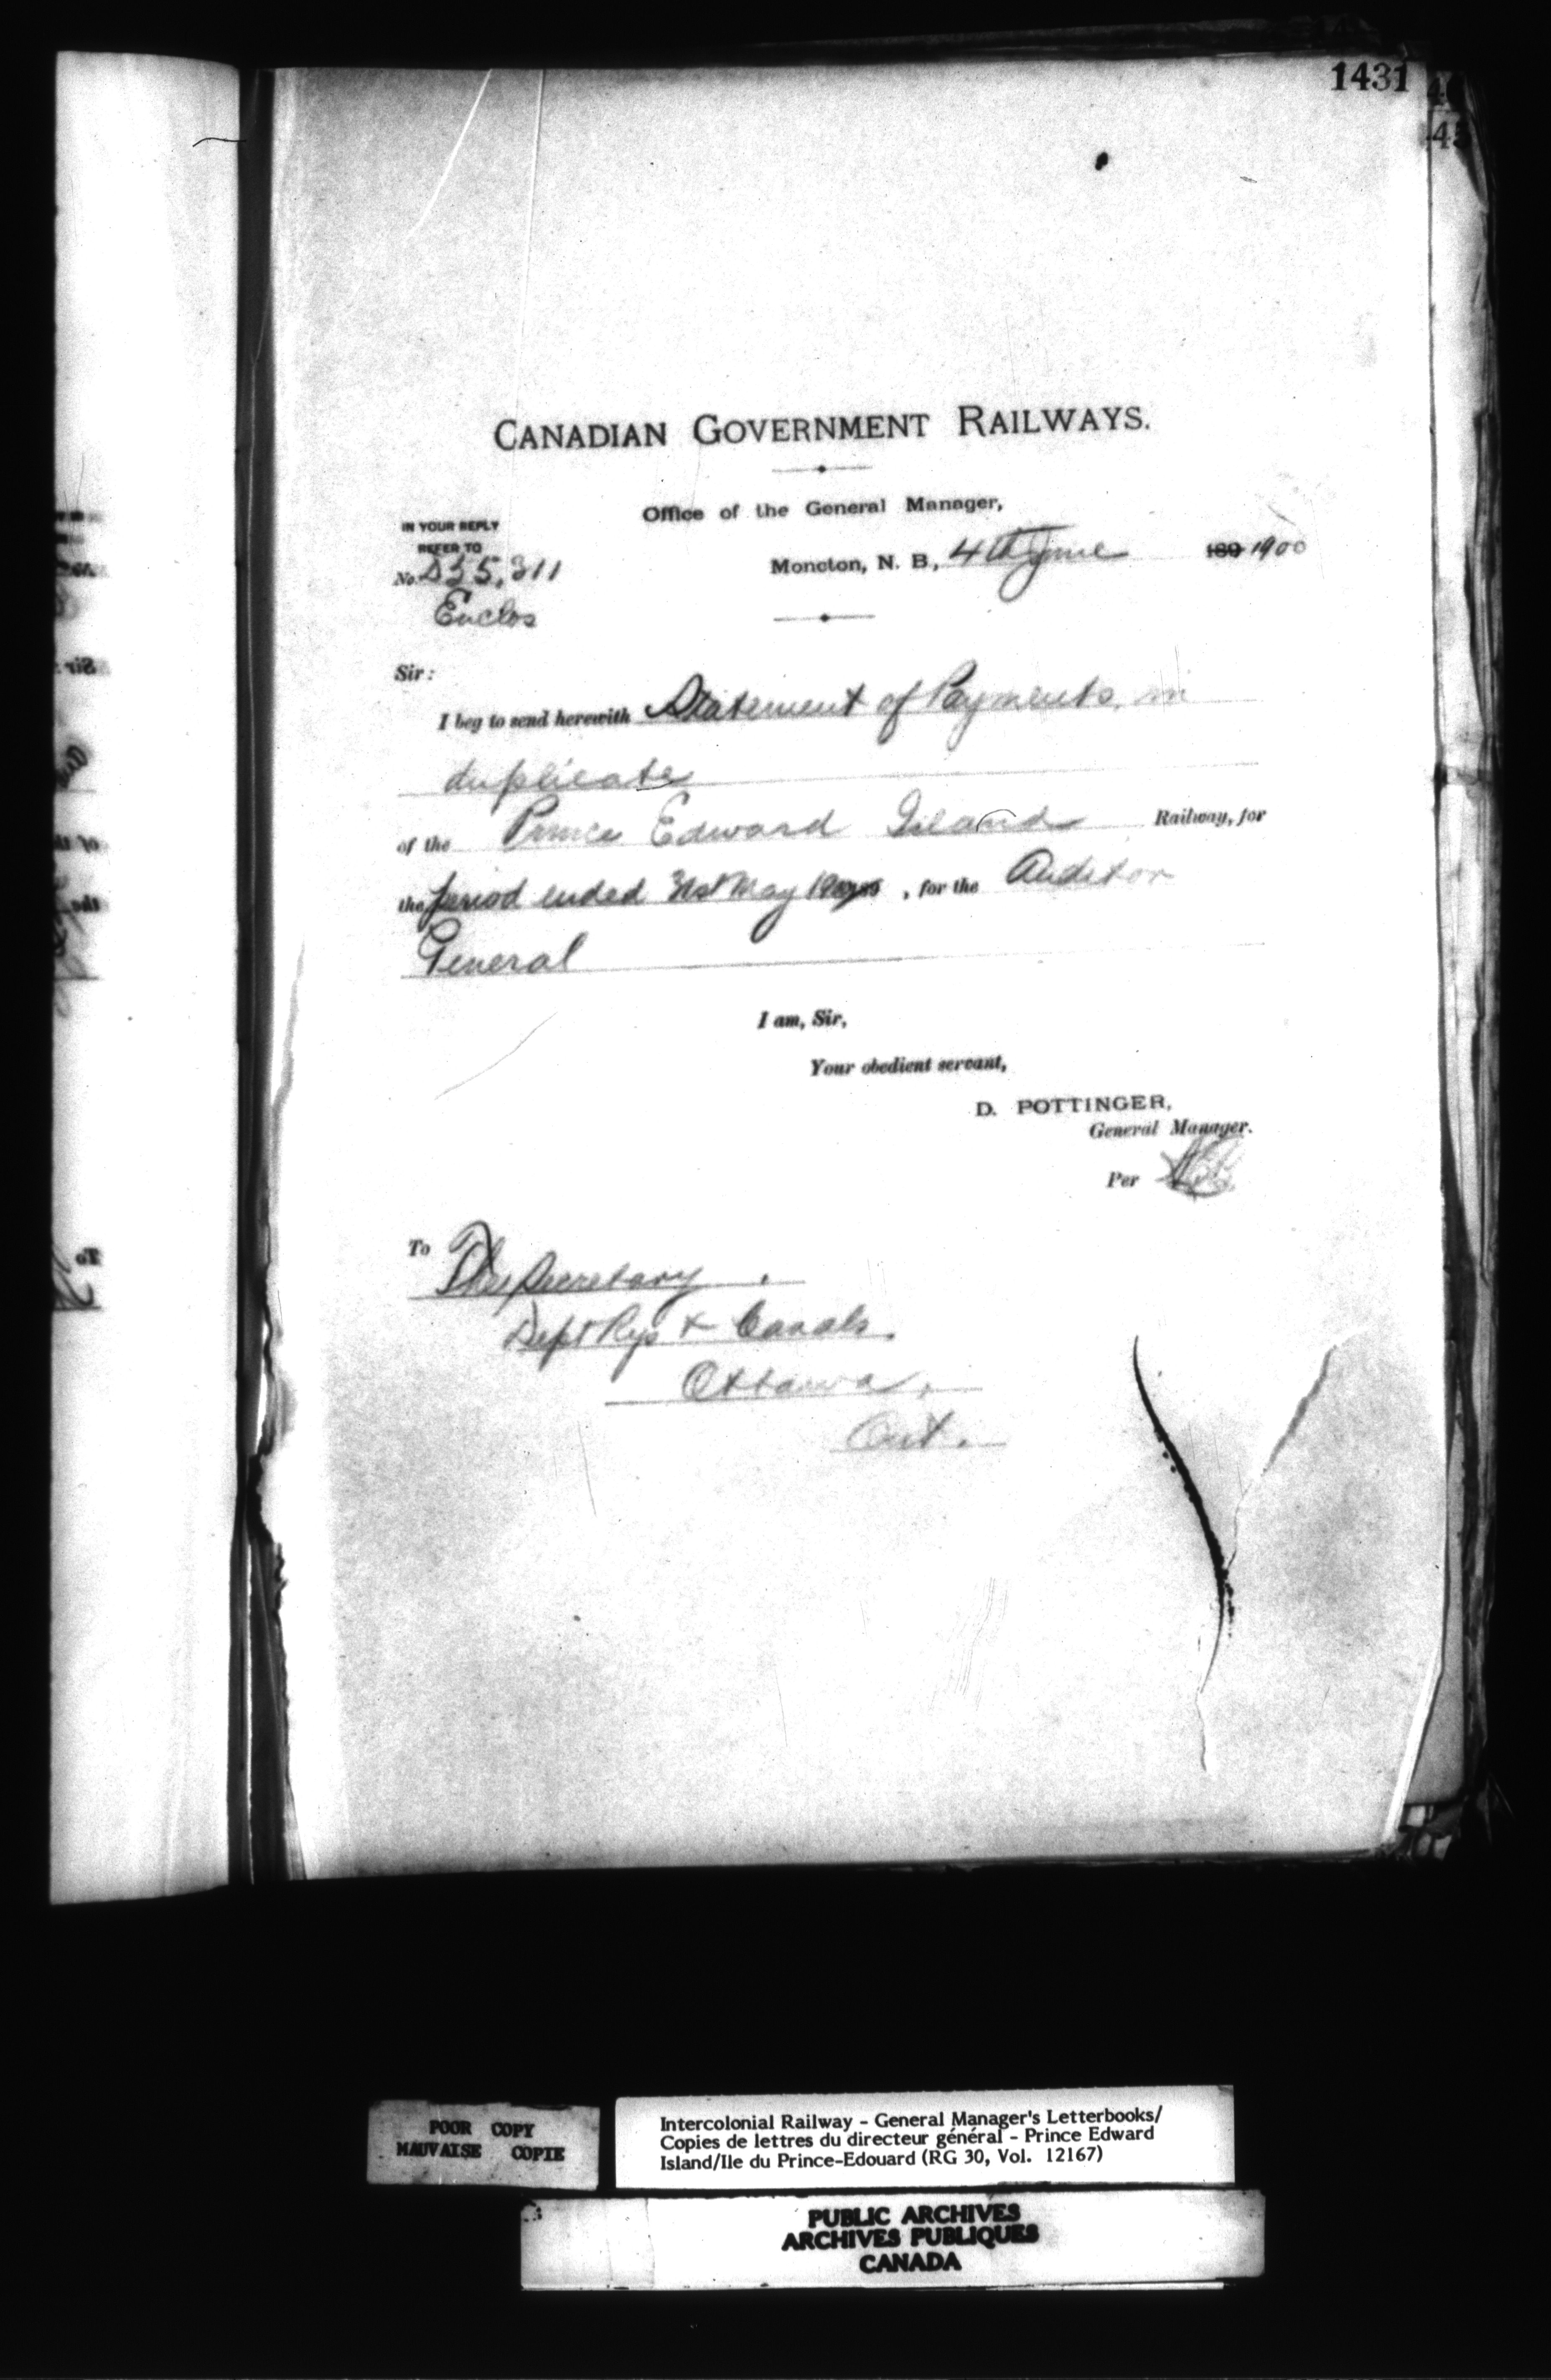 1431
CANADIAN GOVERNMENT RAILWAYS.
Office of the General Manager,
IN YOUR REPLY
REFER TO
No. D35,311
Enclos
Moncton, N. B., 4th June 189 1900
Sir:
I beg to send herewith Statement of Payments, in
duplicate
of the Prince Edward Island Railway, for
the period ended 31st May 1900, for the Auditor
General
I am, Sir,
Your obedient servant,
D. POTTINGER,
General Manager.
Per
To The Secretary.
Dept Rys & Canals.
Ottawa,
Ont.
POOR COPY
MAUVAISE COPIE
Intercolonial Railway - General Manager's Letterbooks/
Copies de lettres du directeur général - Prince Edward
Island/Ile du Prince-Edouard (RG 30, Vol. 12167)
PUBLIC ARCHIVES
ARCHIVES PUBLIQUES
CANADA